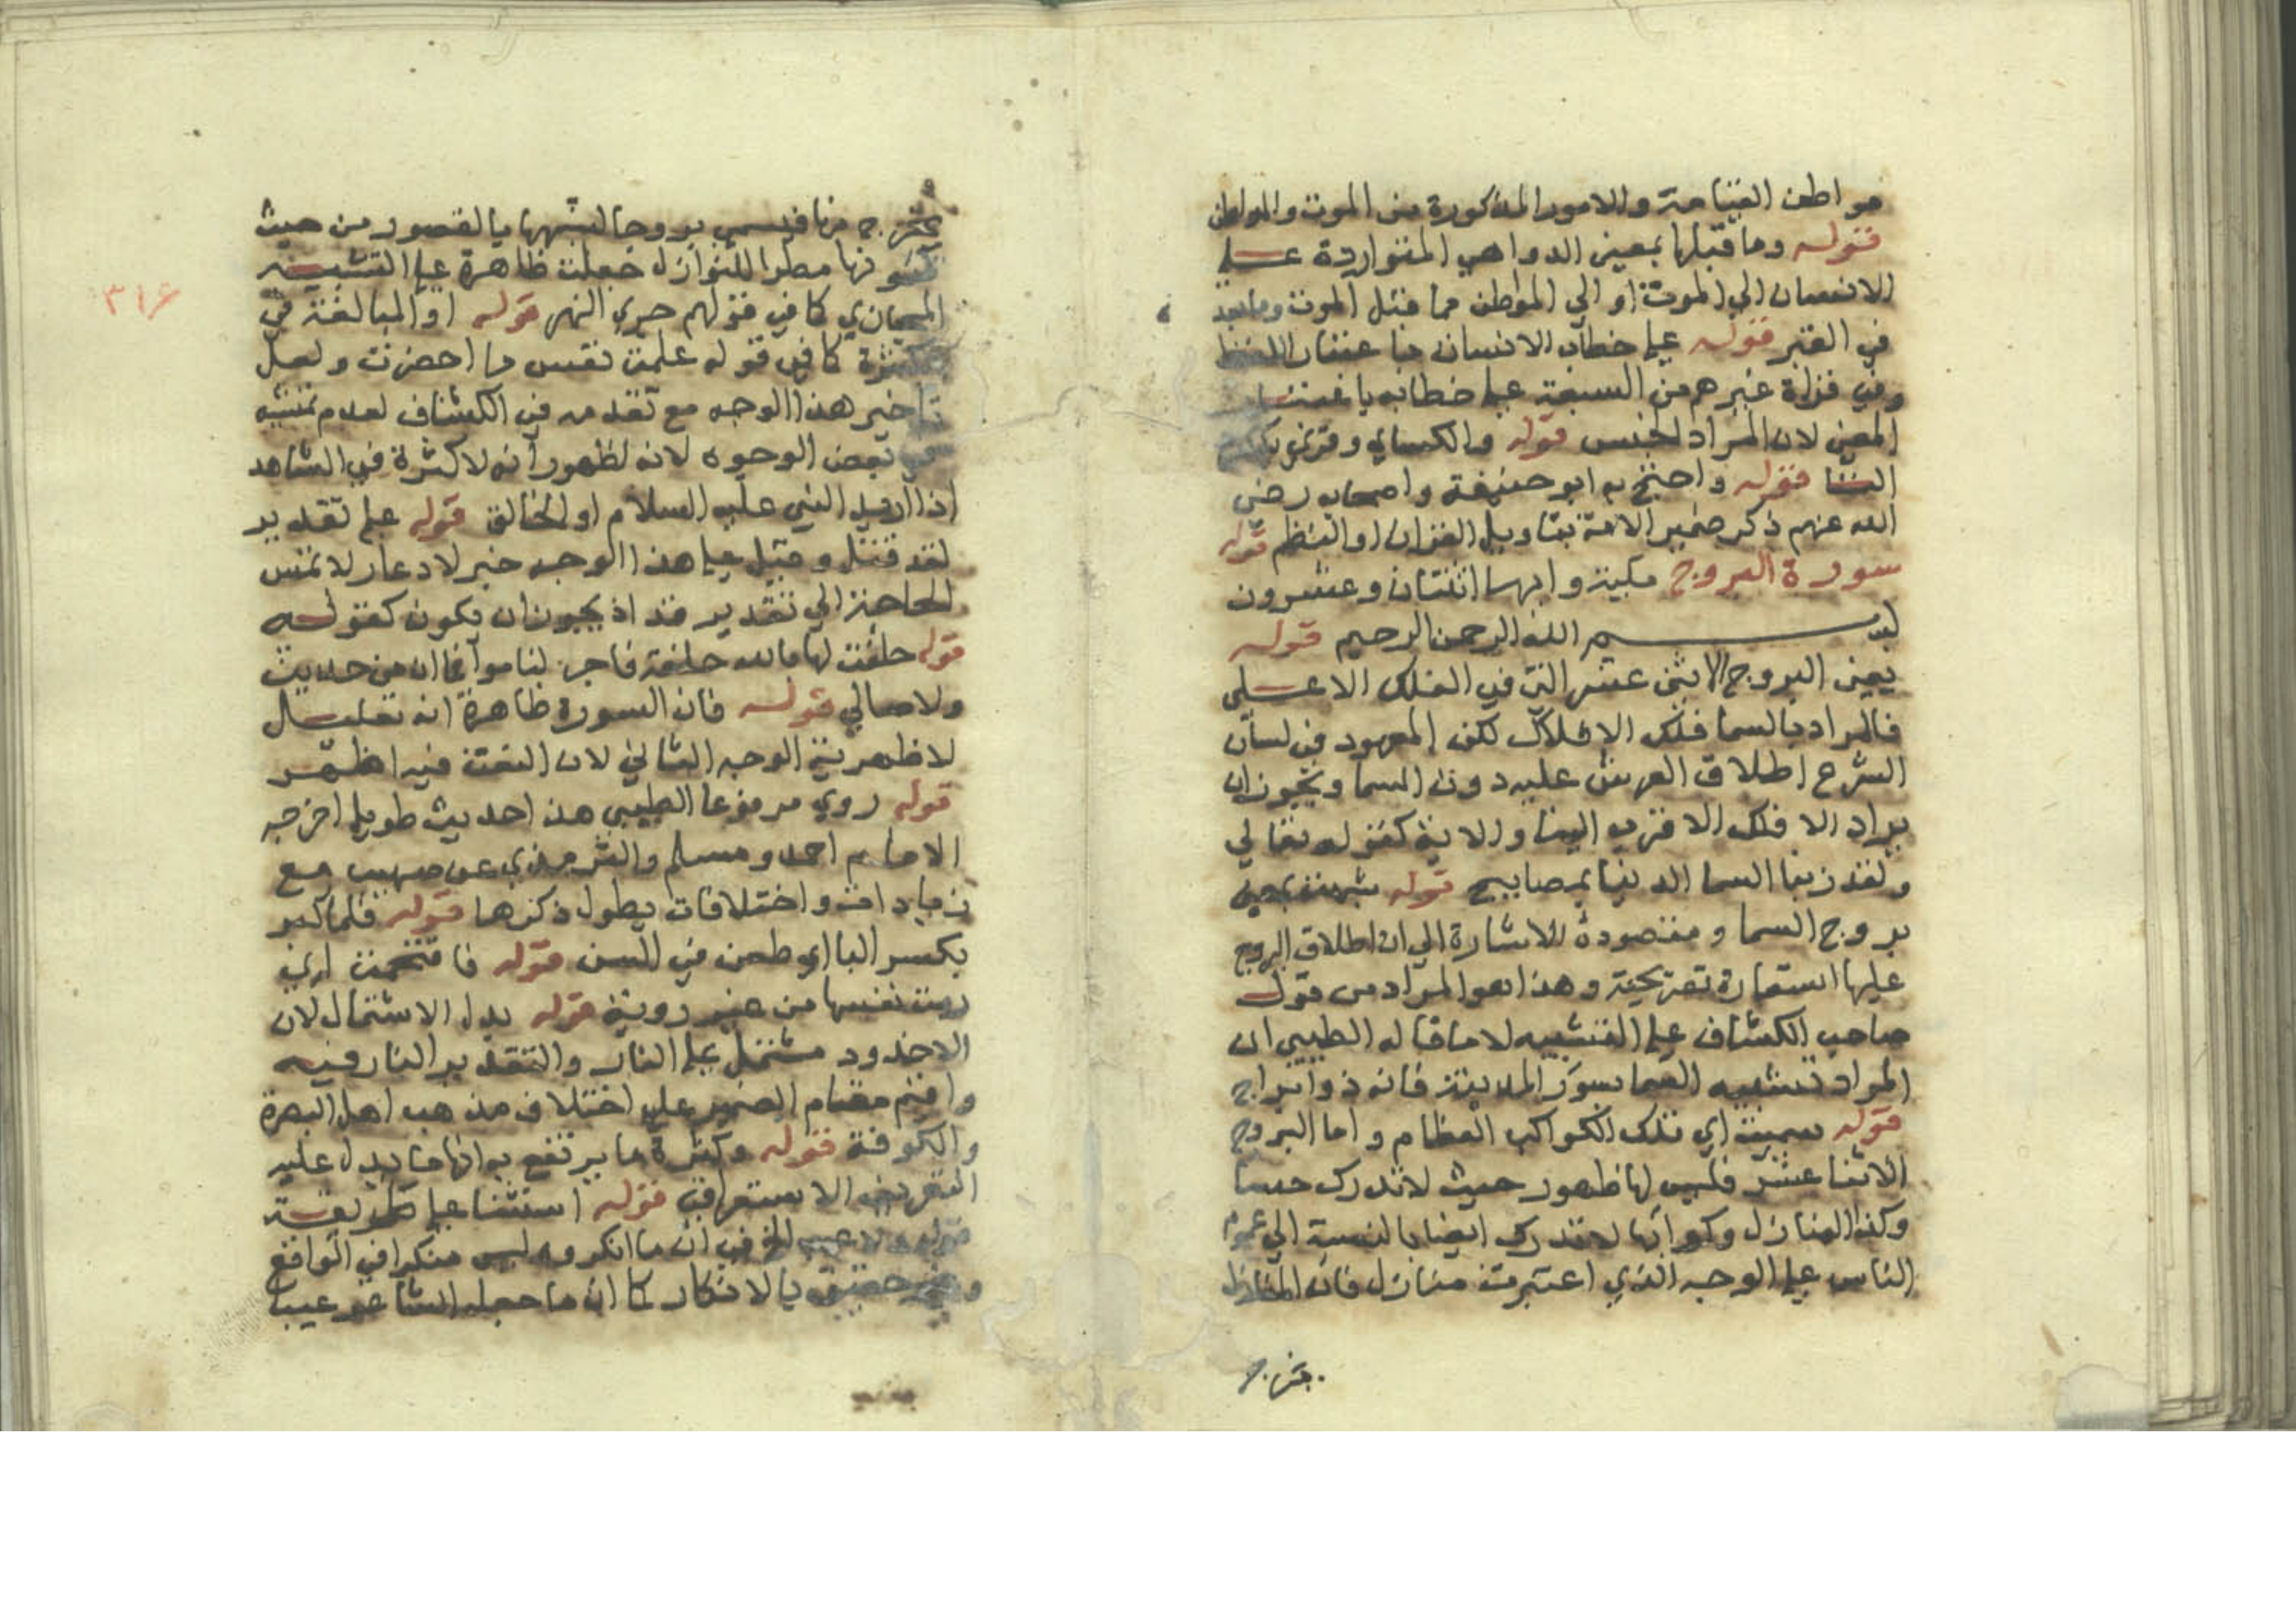 مواطن القيامة والامور المذكورة من الموت والمواطن
قوله وما قبلها بمعنى الدواهي المتواردة على
الانسان الي الموت او الي المواطن مما قبل الموت وما بعد
في القبر قوله على خطاب الانسان باعتبار اللفظ
وفي قراة غيرهم من السبعة على خطابه باعتبار
المعنى لان المراد الجنس قوله والكساي وقرئ
قوله واحتج به ابو حنيفة واصحابه رضي
الله عنهم ذكر ضمير الامة بتاويل القران او النظم قوله
سورة البروج مكية وايها اثنتان وعشرون
بسم الله الرحمن الرحيم قوله
يعني البروج الاثنى عشر التي في الفلك الاعلى
فالمراد بالسما فلك الافلاك لكن المعهود في لسان
الشرع اطلاق العرش عليه دون السما ويجوز ان
يراد الافلك الاقرب الينا والاية كقوله تعالي
ولقد زينا السما الدنيا بمصابيح قوله شبهت يعني
بروج السما ومقصوده الاشارة الي ان اطلاق البروج
عليها استعارة تصريحية وهذا هو المراد من قول
صاحب الكشاف على التشبيه لا ما قاله الطيبي ان
المراد تشبيه السما بسور المدينة فانه ذو ابراج
قوله سميت اي تلك الكواكب العظام واما البروج
الاثنا عشر فليس لها ظهور حيث لا تدرك حسا
وكذا المنازل وكواتها لا تدرك ايضا بالنسبة الي عموم
الناس على الوجه الذي اعتبرت منازل فان النازل
يخرج
٣١٦
يخرج منها فيسمى بروجا لشبهها بالقصور من حيث
كونها مطرا للنوازل فجعلت ظاهرة على التشبيه
المجازي كما في قولهم جري النهر قوله او المبالغة في
الكثرة كما في قوله علمت نفس ما احضرت ولعل
تاخير هذا الوجه مع تقدمه في الكشاف لعدم تمشيه
في بعض الوجوه لانه لظهور انه لا كثرة في الشاهد
اذا اريد النبي عليه السلام او الخالق قوله على تقدير
لقد قتل وقيل على هذا الوجه خبر لا دعا ولا تمس
الحاجة الي تقدير قد اذ يجوز ان يكون كقوله
قوله حلفت لها بالله حلفة فاجر لناموا فما ان من حديث
ولا صالي قوله فان السورة ظاهرة انه تعليل
لاظهرية الوجه الثاني لان اللعنة فيه اظهر
قوله روي مرفوعا الطيبي هذا حديث طويل اخرجه
الامام احمد ومسلم والترمذي عن صهيب مع
زيادات واختلافات يطول ذكرها قوله فلما كبر
بكسر البا اي طعن في السن قوله فاقتحمت اي
رمت نفسها من غير روية قوله بدل الاشتمال لان
الاخدود مشتمل على النار والتقدير النار فيه
واقيم مقام الضمير على اختلاف مذهب اهل البصرة
والكوفة قوله وكثرة ما يرتفع به انها ما يدل عليه
التعريف الاستغراقي قوله استثنا على طريقة
قوله ولا عيب الخ في ان ما انكروه ليس منكرا في الواقع
وغير حقيق بالانكار كما ان ما جعله الشاعر عيبا